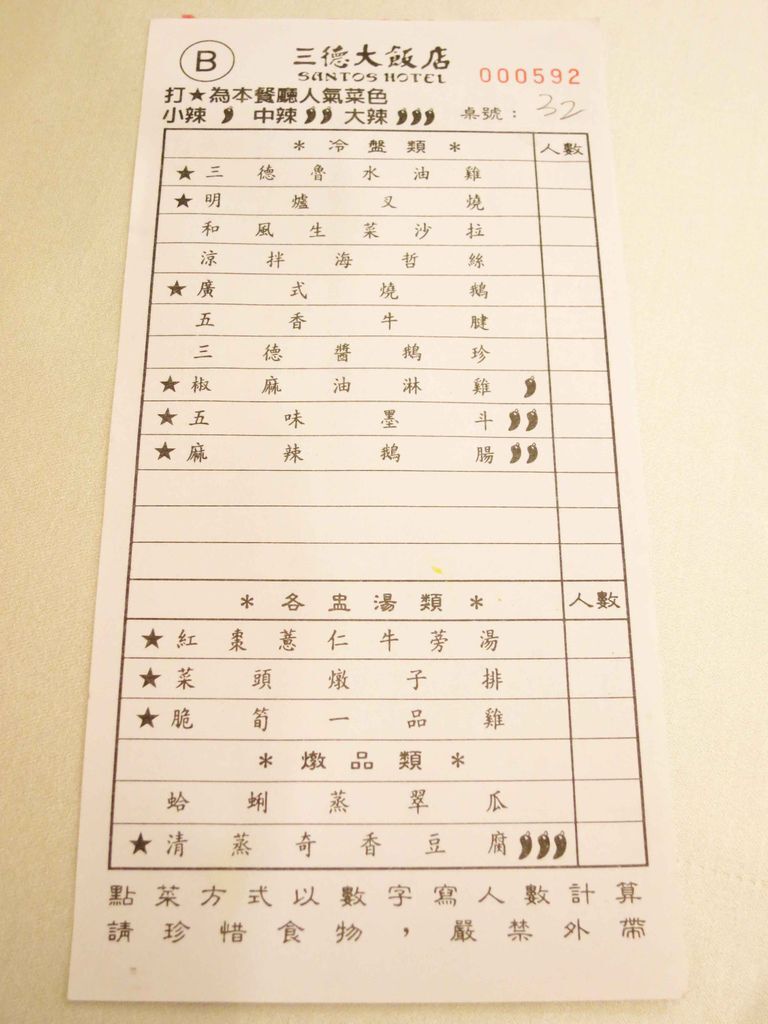 B
三德大飯店
SANTOS HOTEL
000592
打★為本餐廳人氣菜色
小辣 中辣 大辣 桌號： 32
*冷盤類* 人數
★三德魯水油雞
★明爐叉燒
和風生菜沙拉
涼拌海哲絲
★廣式燒鵝
五香牛腱
三德醬鵝珍
★椒麻油淋雞
★五味墨斗
★麻辣鵝腸
*各盅湯類* 人數
★紅棗薏仁牛蒡湯
★菜頭燉子排
★脆筍一品雞
*燉品類*
蛤蜊蒸翠瓜
★清蒸奇香豆腐
點菜方式以數字寫人數計算
請珍惜食物，嚴禁外帶